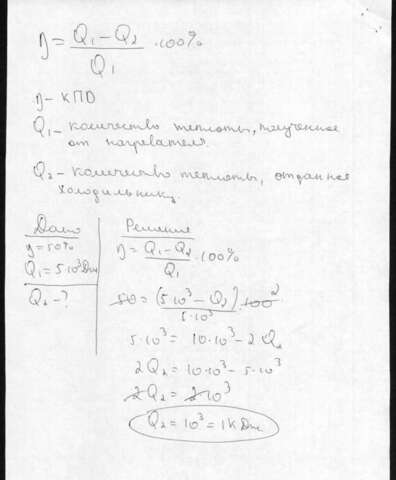 η = (Q₁ – Q₂)/Q₁ · 100%
η – КПД
Q₁ – количество теплоты, полученное
от нагревателя.
Q₂ – количество теплоты, отданное
холодильнику.
Дано
η = 50%
Q₁ = 5·10³ Дж
Q₂ – ?
Решение
η = (Q₁ – Q₂)/Q₁ · 100%
50 = (5·10³ – Q₂)/5·10³ · 100 2
5·10³ = 10·10³ – 2·Q₂
2Q₂ = 10·10³ – 5·10³
2Q₂ = 2 10³
Q₂ = 10³ = 1 кДж